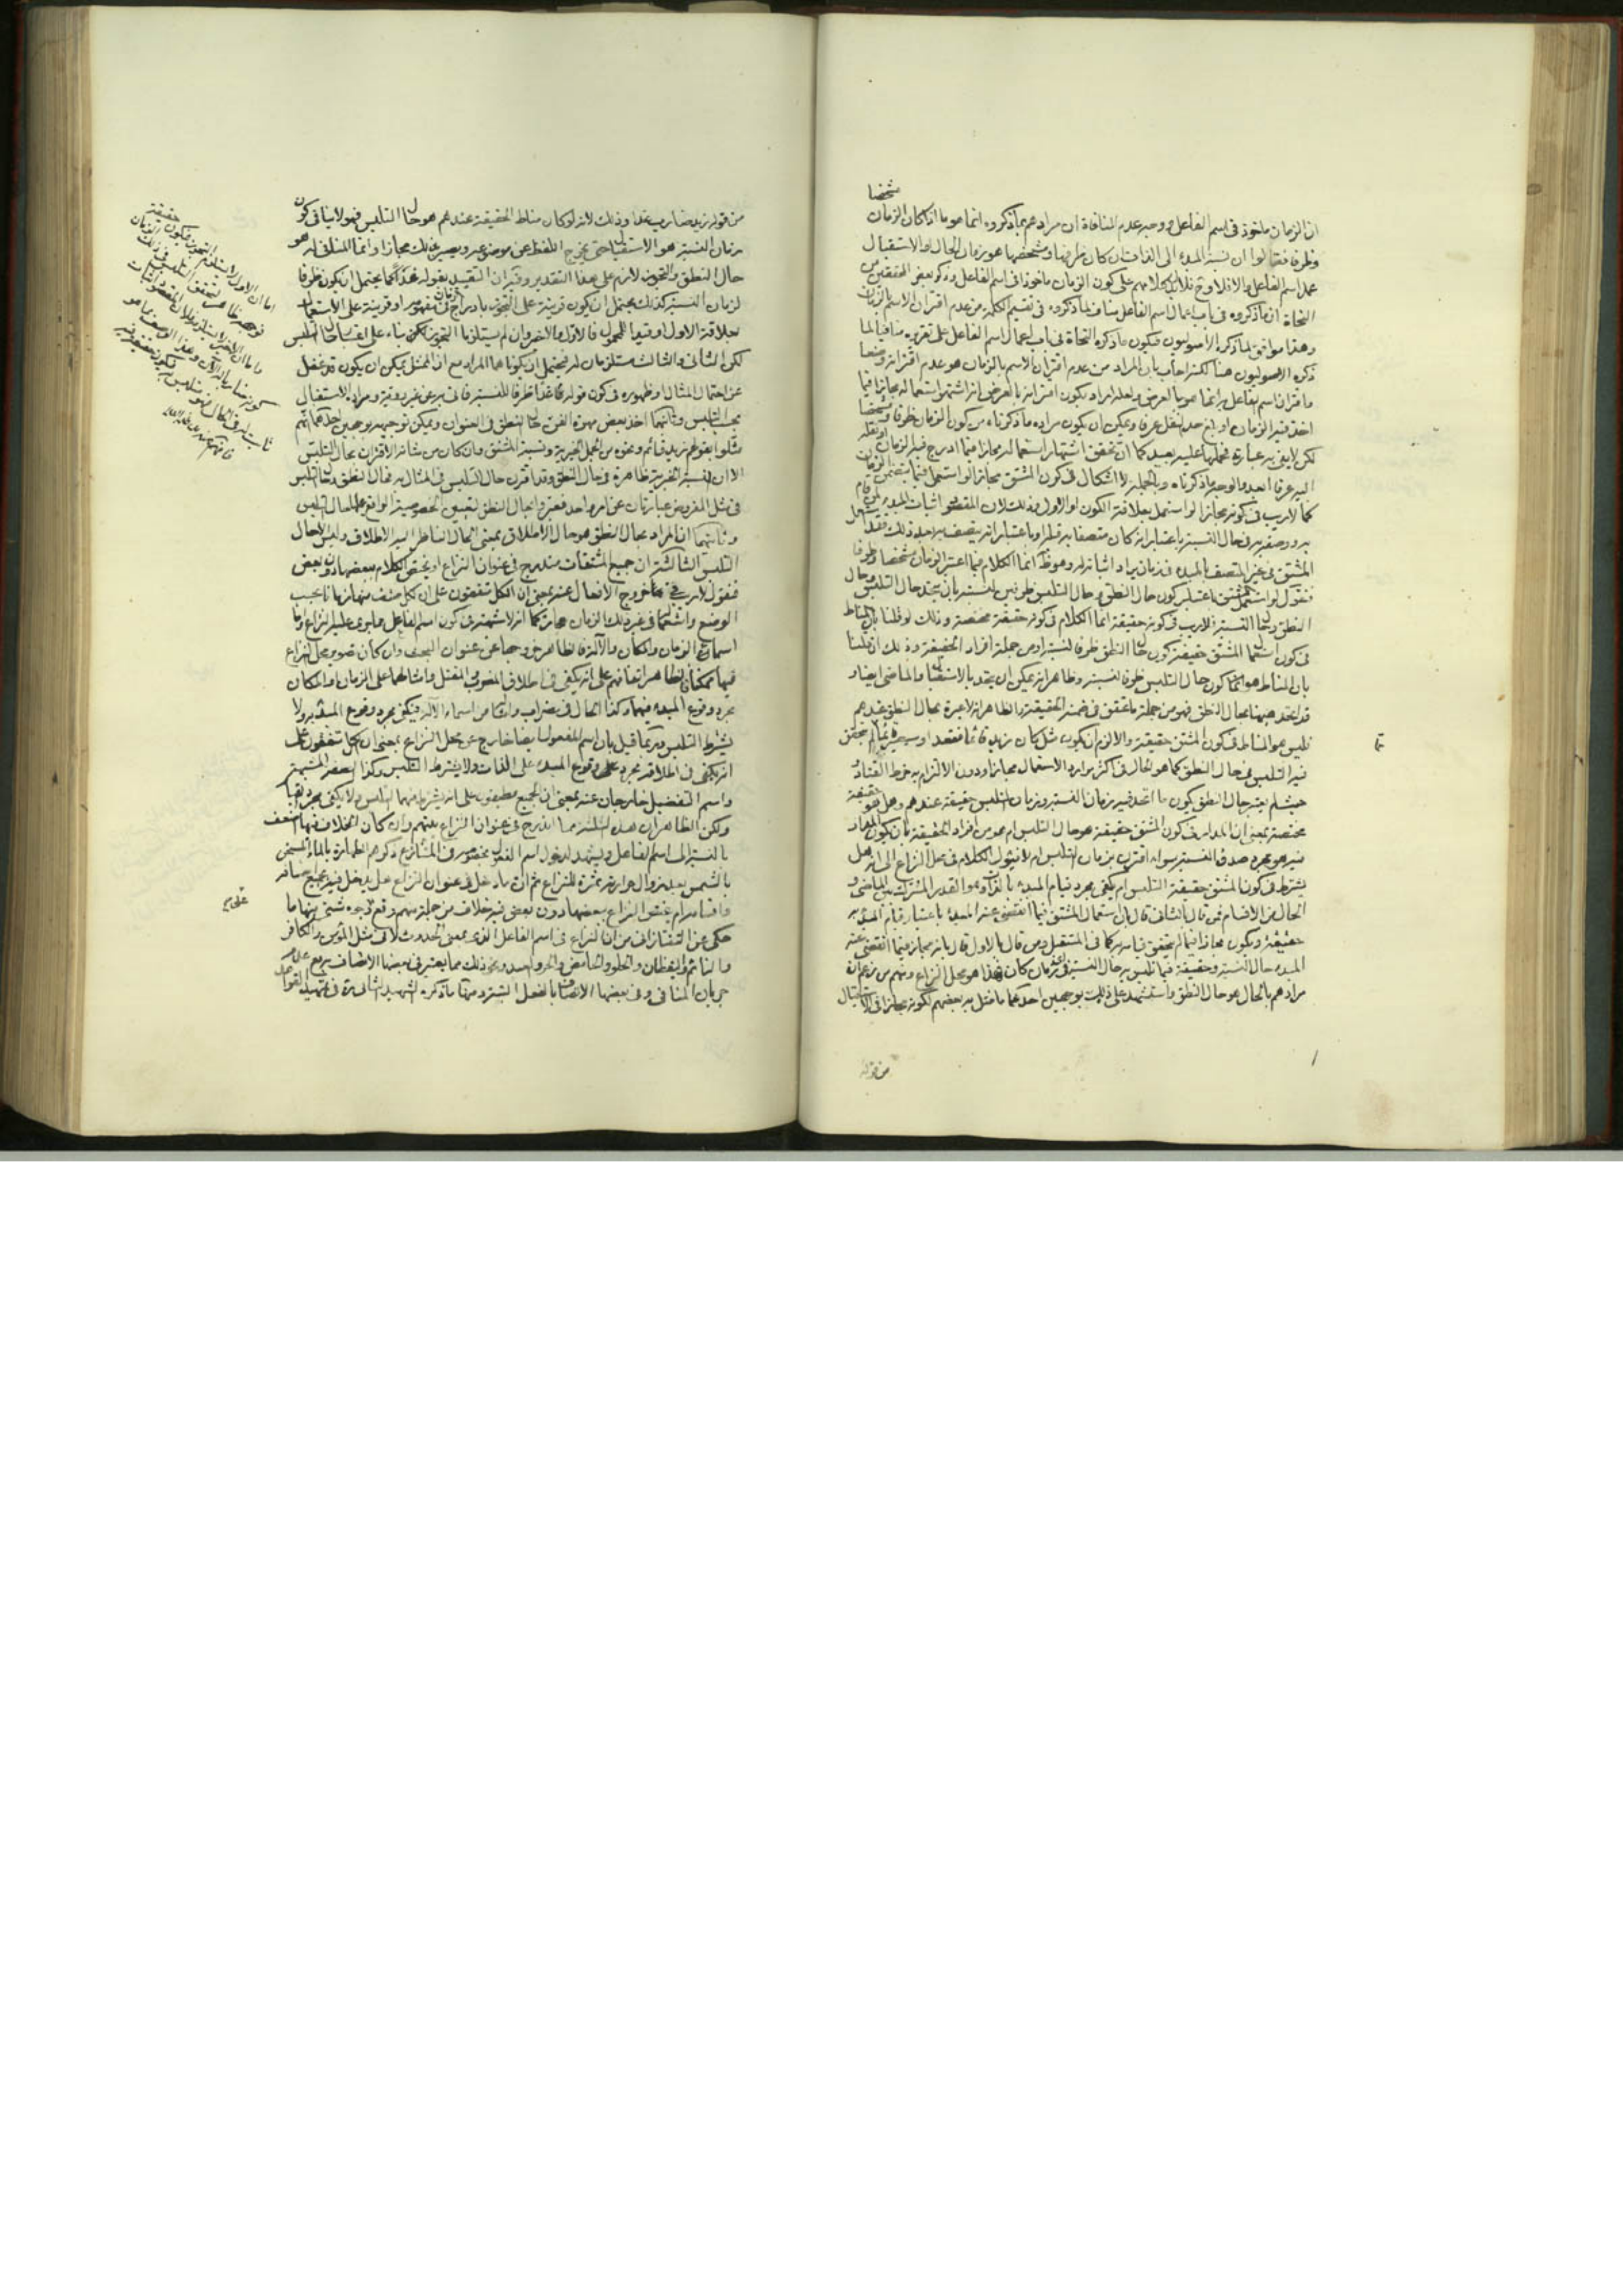 مشخصا
ان الزمان ماخوذ فى اسم الفاعل ووجه عدم المنافاة ان مرادهم بما ذكروه انما هو ما اذا كان الزمان
وظرفا فقالوا ان نسبة المبدء الى الذات ان كان ظرفها ومشخصها هو زمان الحال او الاستقبال
عمل اسم الفاعل والا فلا وح فلا يدل كلامهم على كون الزمان ماخوذا فى اسم الفاعل وذكر بعض المحققين من
النحاة ان ما ذكروه فى باب اعمال اسم الفاعل مناف لما ذكروه فى تقسيم الكلمة من عدم اقتران الاسم بالزمان
وهذا موافق لما ذكره الاصوليون فيكون ما ذكره النحاة فى باب اعمال اسم الفاعل على تقريره منافيا لما
ذكره الاصوليون هنا لكنه اجاب بان المراد من عدم اقتران الاسم بالزمان هو عدم اقترانه وضعا
واقتران اسم الفاعل به انما هو بالعرض ولعله اراد بكون اقترانه بالعرض انه اشتهر استعماله مجازا فيما
اخذ فيه الزمان او بلغ حد النقل عرفا ويمكن ان يكون مراده ما ذكرناه من كون الزمان ظرفا ومشخصا
لكن لا يفى به عبارته فحملها عليه بعيد كما ان تحقق اشتهار استعماله مجازا فيما ادرج فيه الزمان او نقله
اليه عرفا ابعد والوجه ما ذكرناه وبالجملة لا اشكال فى كون المشتق مجازا لو استعمل فيما يتضمن الزمان
كما لا ريب فى كونه مجازا لو استعمل بعلاقة الكون او الاول وذلك لان المقصود اثبات المبدء لمن قام
به ووصفه به فى حال النسبة باعتبار انه كان متصفا به قبل او باعتبار انه يتصف به بعد ذلك فقد استعمل
المشتق فى غير المتصف بالمبدء فى زمان يراد اثباته له وهو ظ انما الكلام فيما اعتبر الزمان مشخصا وظرفا
فنقول لو استعمل المشتق باعتبار كون حال النطق وحال التلبس ظرفين للنسبة بان يتحد حال التلبس وحال
النطق وحال النسبة فلا ريب فى كونه حقيقة انما الكلام فى كونه حقيقة مختصة وذلك لو قلنا بان المناط
فى كون استعمال المشتق حقيقة كون حال النطق ظرفا لنسبته او من جملة افراد الحقيقة وذلك ان قلنا
بان المناط هو انما كون حال التلبس ظرفا لنسبته وظاهر انه يمكن ان يتحد بالاستقبال والماضى ايضا و
قد اتحد هيهنا بحال النطق فهو من جملة ما تحقق فى ضمنه الحقيقة والظاهر انه لا عبرة بحال النطق عندهم
فليس هو المناط فى كون المشتق حقيقة والا لزم ان يكون مثل كان زيد قائما فقعد او سيصير قائما لم يتحقق
فيه التلبس فى حال النطق كما هو الحال فى اكثر موارد الاستعمال مجازا ودون الالتزام به خرط القتاد
حيث لم يعتبر حال النطق يكون ما اتحد فيه زمان النسبة وزمان التلبس حقيقة عندهم وهل هو حقيقة
مختصة بمعنى ان المدار فى كون المشتق حقيقة هو حال التلبس ام هو من افراد الحقيقة بان يكون المدار
فيه هو مجرد صدق النسبة سواء اقترن بزمان التلبس ام لا فيئول الكلام فى محل النزاع الى انه هل
يشترط فى كون المشتق حقيقة التلبس ام يكفى مجرد قيام المبدء بالذات وهو القدر المشترك بين الماضى و
الحال من الاقسام فمن قال بالثانى قال بان استعمال المشتق فيما انقضى عنه المبدء باعتبار قيام المبدء به
حقيقة ويكون مجازا فيما لم يتحقق قيامه به كما فى المستقبل ومن قال بالاول قال بانه مجاز فيما انقضى عنه
المبدء حال النسبة وحقيقة فيما تلبس به حال النسبة فى اى زمان كان فهذا هو محل النزاع ومنهم من زعم ان
مرادهم بالحال هو حال النطق واستشهد على ذلك بوجهين احدهما ما مثل به بعضهم لكونه مجازا فى الاستقبال
من قوله
من قوله زيد ضارب غدا وذلك لانه لو كان مناط الحقيقة عندهم هو حال التلبس فهو لا ينافى كون
زمان النسبة هو الاستقبال حتى يخرج اللفظ عن موضوعه ويصير بذلك مجازا وانما المنافى له هو
حال النطق والتجوز لازم على هذا التقدير وفيه ان التقييد بقوله غدا كما يحتمل ان يكون ظرفا
لزمان النسبة كذلك يحتمل ان يكون قرينة على التجوز بادراج الزمان فى مفهومه او قرينة على الاستعمال
بعلاقة الاول او قيدا للمحمول فالاول والاخر وان لم يستلزما التجوز لكن بناء على اعتبار حال التلبس
لكن الثانى والثالث مستلزمان له فيحتمل ان يكونا هما المراد مع ان الممثل يمكن ان يكون قد غفل
عن احتمال المثال او ظهوره فى كون قوله غدا ظرفا للنسبة فاتى به عن غير روية ومراده الاستقبال
بحسب التلبس وثانيهما اخذ بعض مهرة الفن حال النطق فى العنوان ويمكن توجيهه بوجهين احدهما انهم
مثلوا بقولهم زيد قائم ونحوه من الجمل الخبرية ونسبة المشتق وان كان من شانه الاقتران بحال التلبس
الا ان النسبة الخبرية ظاهرة فى حال النطق وقد اقترن حال التلبس فى المثال به فحال النطق وحال التلبس
فى مثل المفروض عبارتان عن امر واحد فعبر عنه بحال النطق لتعيين الخصوصية الواقع عليها حال التلبس
وثانيهما ان المراد بحال النطق هو حال الاطلاق بمعنى الحال الناظر اليه الاطلاق وليس الا حال
التلبس الثالثة ان جميع المشتقات مندرج فى عنوان النزاع او يختص الكلام ببعضها دون بعض
فنقول لا ريب فى خروج الافعال عنه بمعنى ان الكل متفقون على ان كل صنف منها زمانا بحسب
الوضع واستعمالها فى غير ذلك الزمان مجاز كما انه لا شبهة فى كون اسم الفاعل مما يجرى عليه النزاع واما
اسماء الزمان والمكان والآلة فالظاهر خروجها عن عنوان المبحث وان كان تصوير محل النزاع
فيها ممكنا فالظاهر اتفاقهم على انه يكفى فى اطلاق المضرب والمقتل وامثالهما على الزمان او المكان
مجرد وقوع المبدء فيهما وكذا الحال فى مضراب وامثاله من اسماء الآلة فيكفى مجرد وقوع المبدء به ولا
يشترط التلبس وربما قيل بان اسم المفعول ايضا خارج عن محل النزاع بمعنى ان الكل متفقون على
انه يكفى فى اطلاقه مجرد وقوع المبدء على الذات ولا يشترط التلبس وكذا الصفة المشبهة
واسم التفضيل خارجان عنه بمعنى ان الجميع مطبقون على انه يشترط فيهما التلبس ولا يكفى مجرد القيام
ولكن الظاهر ان هذه الثلثة مما اندرج فى عنوان النزاع بينهم وان كان الخلاف فيها اضعف
بالنسبة الى اسم الفاعل ويشهد لدخول اسم المفعول بخصوصه فى المتنازع ذكرهم الطهارة بالماء المسخن
بالشمس بعد زوال حرارته ثمرة للنزاع ثم ان ما دخل فى عنوان النزاع هل يدخل فيه بجميع اصنافه
واقسامه ام يختص النزاع ببعضها دون بعض فيه خلاف من جملة منهم وقع بوجوه شتى منها ما
حكى عن التفتازانى من ان النزاع فى اسم الفاعل الذى بمعنى الحدوث لا فى مثل المؤمن والكافر
والنائم واليقظان والحلو والحامض والحر والعبد ونحو ذلك مما يعتبر فى بعضها الاتصاف به مع عدم
جريان المنافى وفى بعضها الاتصاف بالفعل البتة ومنها ما ذكره الشهيد الثانى ره فى تمهيد القواعد